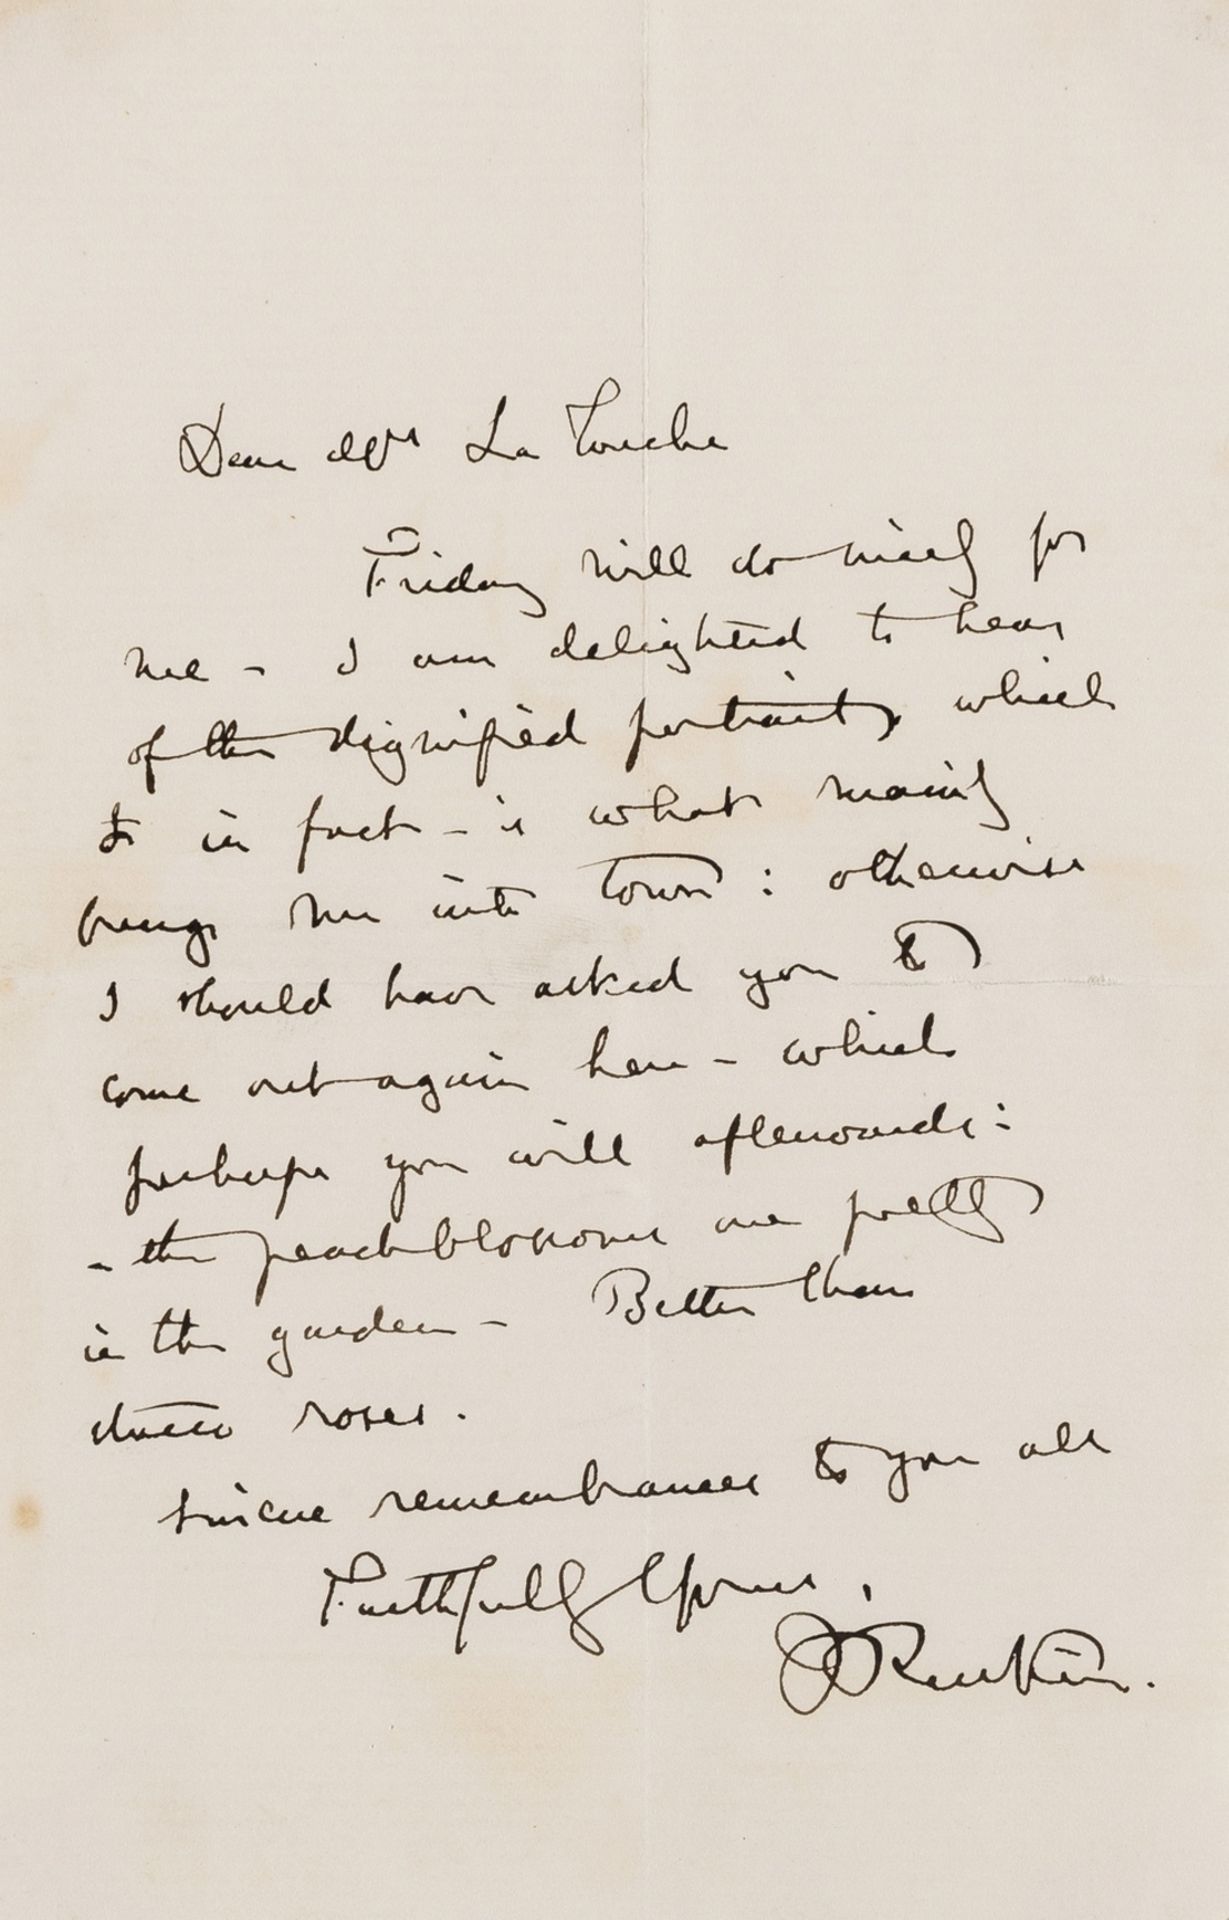 Dear Mrs La Touche
Friday will do nicely for
me - I am delighted to hear
of the dignified portrait, which
in fact - is what mainly
brings me into town : otherwise
I should have asked you to
come out again here - which
perhaps you will afterwards :
- the peachblossoms are pretty
in the garden - Better than
roses.
sincere remembrances to you all
Faithfully Yours,
J Ruskin.